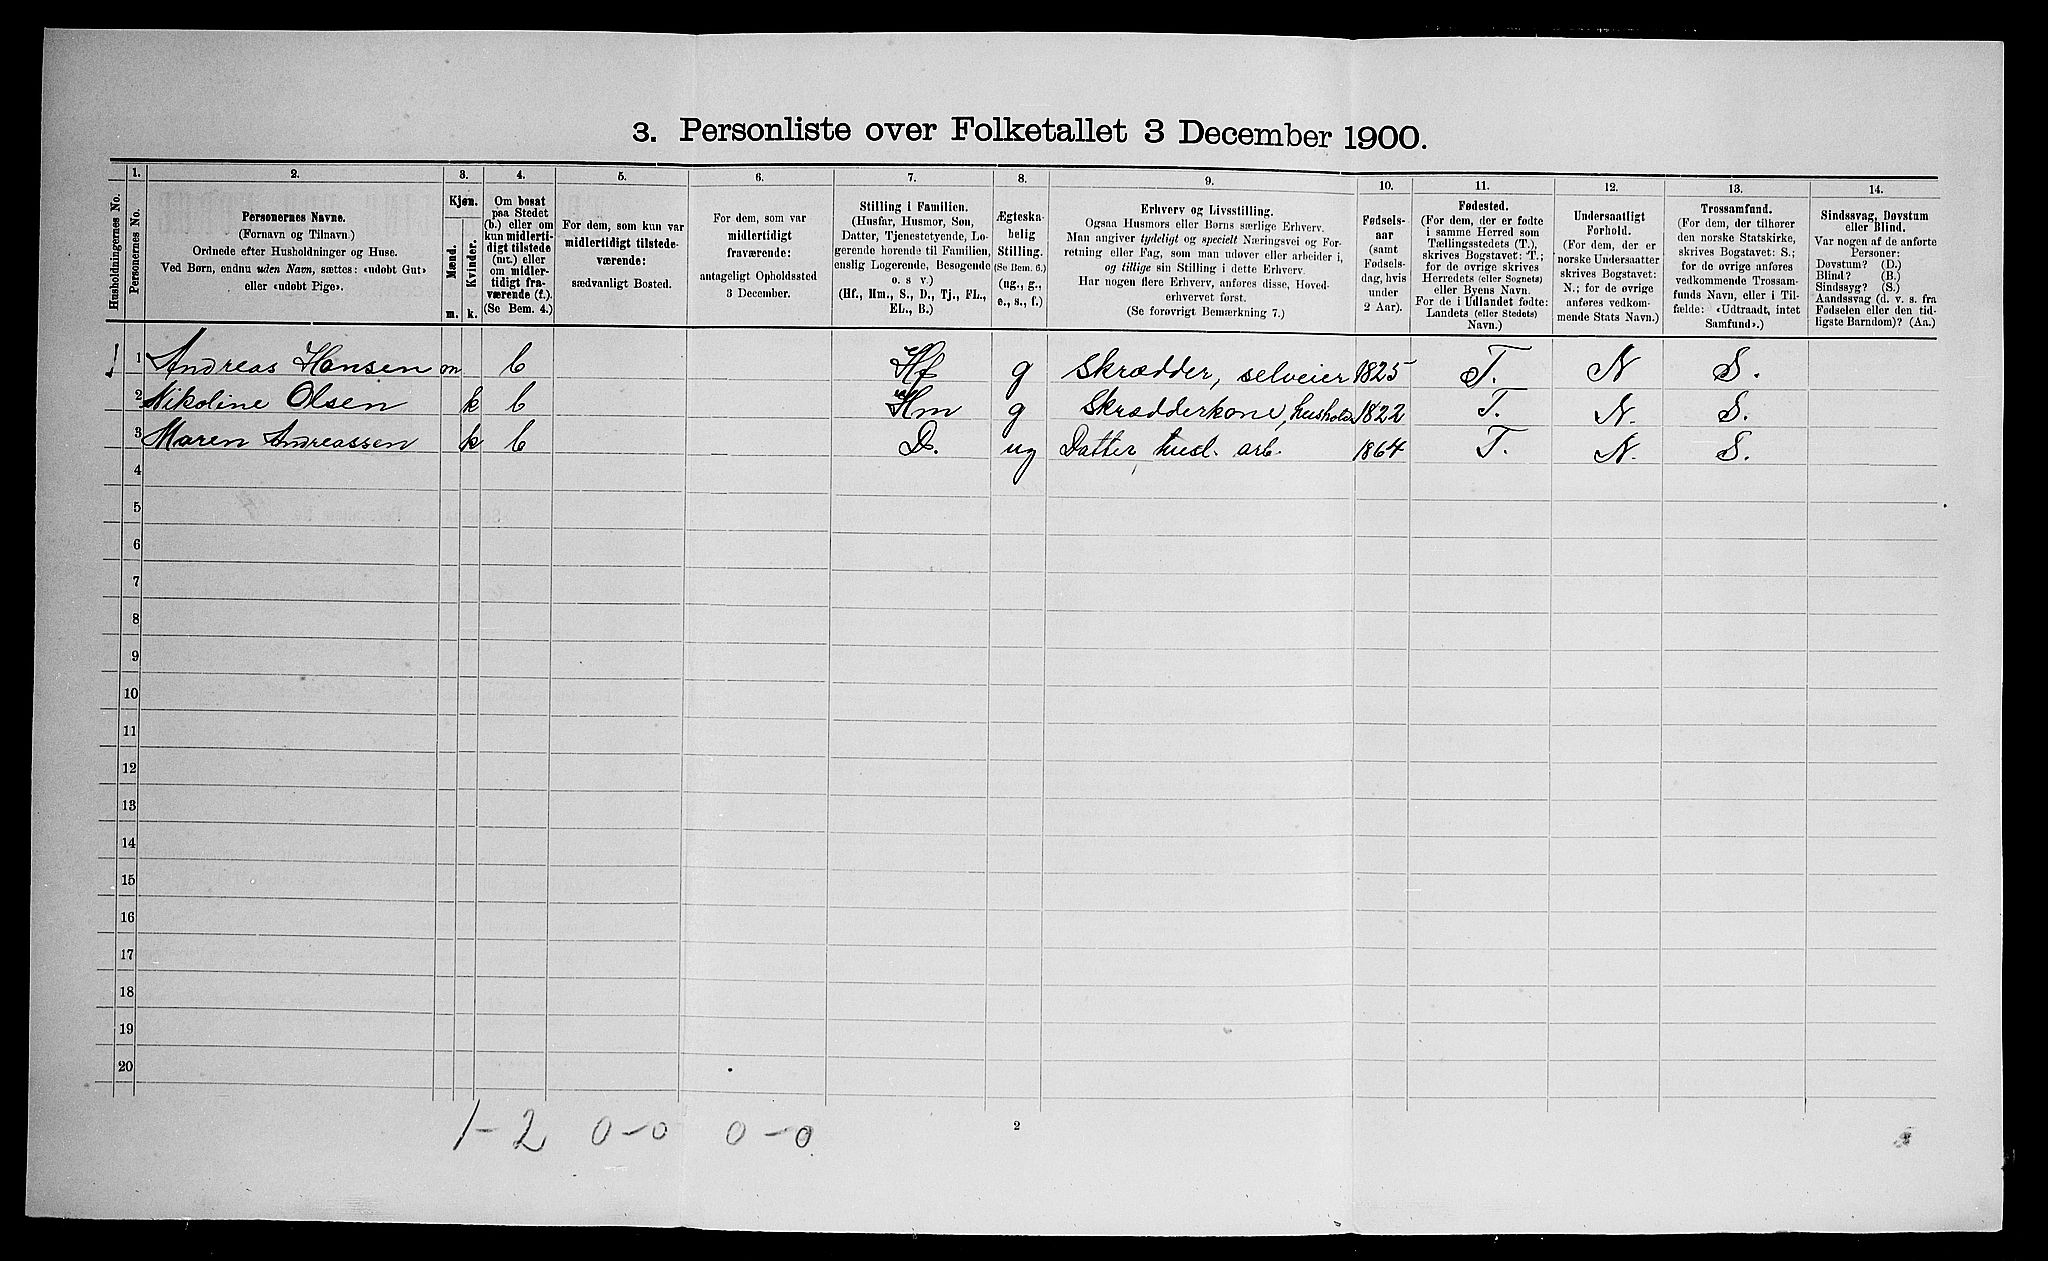 3. Personliste over Folketallet 3 December 1900.
Husholdningernes No.
1.
Personernes No.
2.
Personernes Navne.
(Fornavn og Tilnavn.)
Ordnede efter Husholdninger og Huse.
Ved Børn, endnu uden Navn, sættes: «udøbt Gut»
eller «udøbt Pige».
3.
Kjøn.
Mænd.
Kvinder.
m. k.
4.
Om bosat
paa Stedet
(b.) eller om
kun midlerti-
digt tilstede
(mt.) eller
om midler-
tidigt fra-
værende (f.).
(Se Bem. 4.)
5.
For dem, som kun var
midlertidigt tilstede-
værende:
sædvanligt Bosted.
6.
For dem, som var
midlertidigt
fraværende:
antageligt Opholdssted
3 December.
7.
Stilling i Familien.
(Husfar, Husmor, Søn,
Datter, Tjenestetyende, Lo-
gerende hørende til Familien,
enslig Logerende, Besøgende
o. s v.)
(Hf., Hm., S., D., Tj., FL.,
EL., B.)
8.
Ægteska-
belig
Stilling.
(Se Bem. 6.)
(ug., g.,
e., s., f.)
9.
Erhverv og Livsstilling.
Ogsaa Husmors eller Børns særlige Erhverv.
Man angiver tydeligt og specielt Næringsvei og For-
retning eller Fag, som man udøver eller arbeider i,
og tillige sin Stilling i dette Erhverv.
Har nogen flere Erhverv, anføres disse, Hoved-
erhvervet først.
(Se forøvrigt Bemærkning 7.)
10.
Fødsels-
aar
(samt
Fødsels-
dag, hvis
under
2 Aar).
11.
Fødested.
(For dem, der er fødte
i samme Herred som
Tællingsstedets (T.),
skrives Bogstavet: T.;
for de øvrige skrives
Herredets (eller Sognets)
eller Byens Navn.
For de i Udlandet fødte:
Landets (eller Stedets)
Navn.)
12.
Undersaatligt
Forhold.
(For dem, der er
norske Undersaatter
skrives Bogstavet:
N.; for de øvrige
anføres vedkom-
mende Stats Navn.)
13.
Trossamfund.
(For dem, der tilhører
den norske Statskirke,
skrives Bogstavet: S.;
for de øvrige anføres
vedkommende Trossam-
funds Navn, eller i Til-
fælde: «Udtraadt, intet
Samfund».)
14.
Sindssvag, Døvstum
eller Blind.
Var nogen af de anførte
Personer:
Døvstum? (D.)
Blind? (B.)
Sindssyg? (S.)
Aandssvag (d. v. s. fra
Fødselen eller den tid-
ligste Barndom)? (Aa.)
1 1 Andreas Hansen m b Hf g Skrædder, selveier 1825 T. N S.
2 Nikoline Olsen k b Hm g Skrædderkone, hushold 1822 T. N. S.
3 Maren Andreassen k b D. ug Datter, husl. arb. 1864 T. N. S.
4
5
6
7
8
9
10
11
12
13
14
15
16
17
18
19
20
1-2 0-0 0-0
2